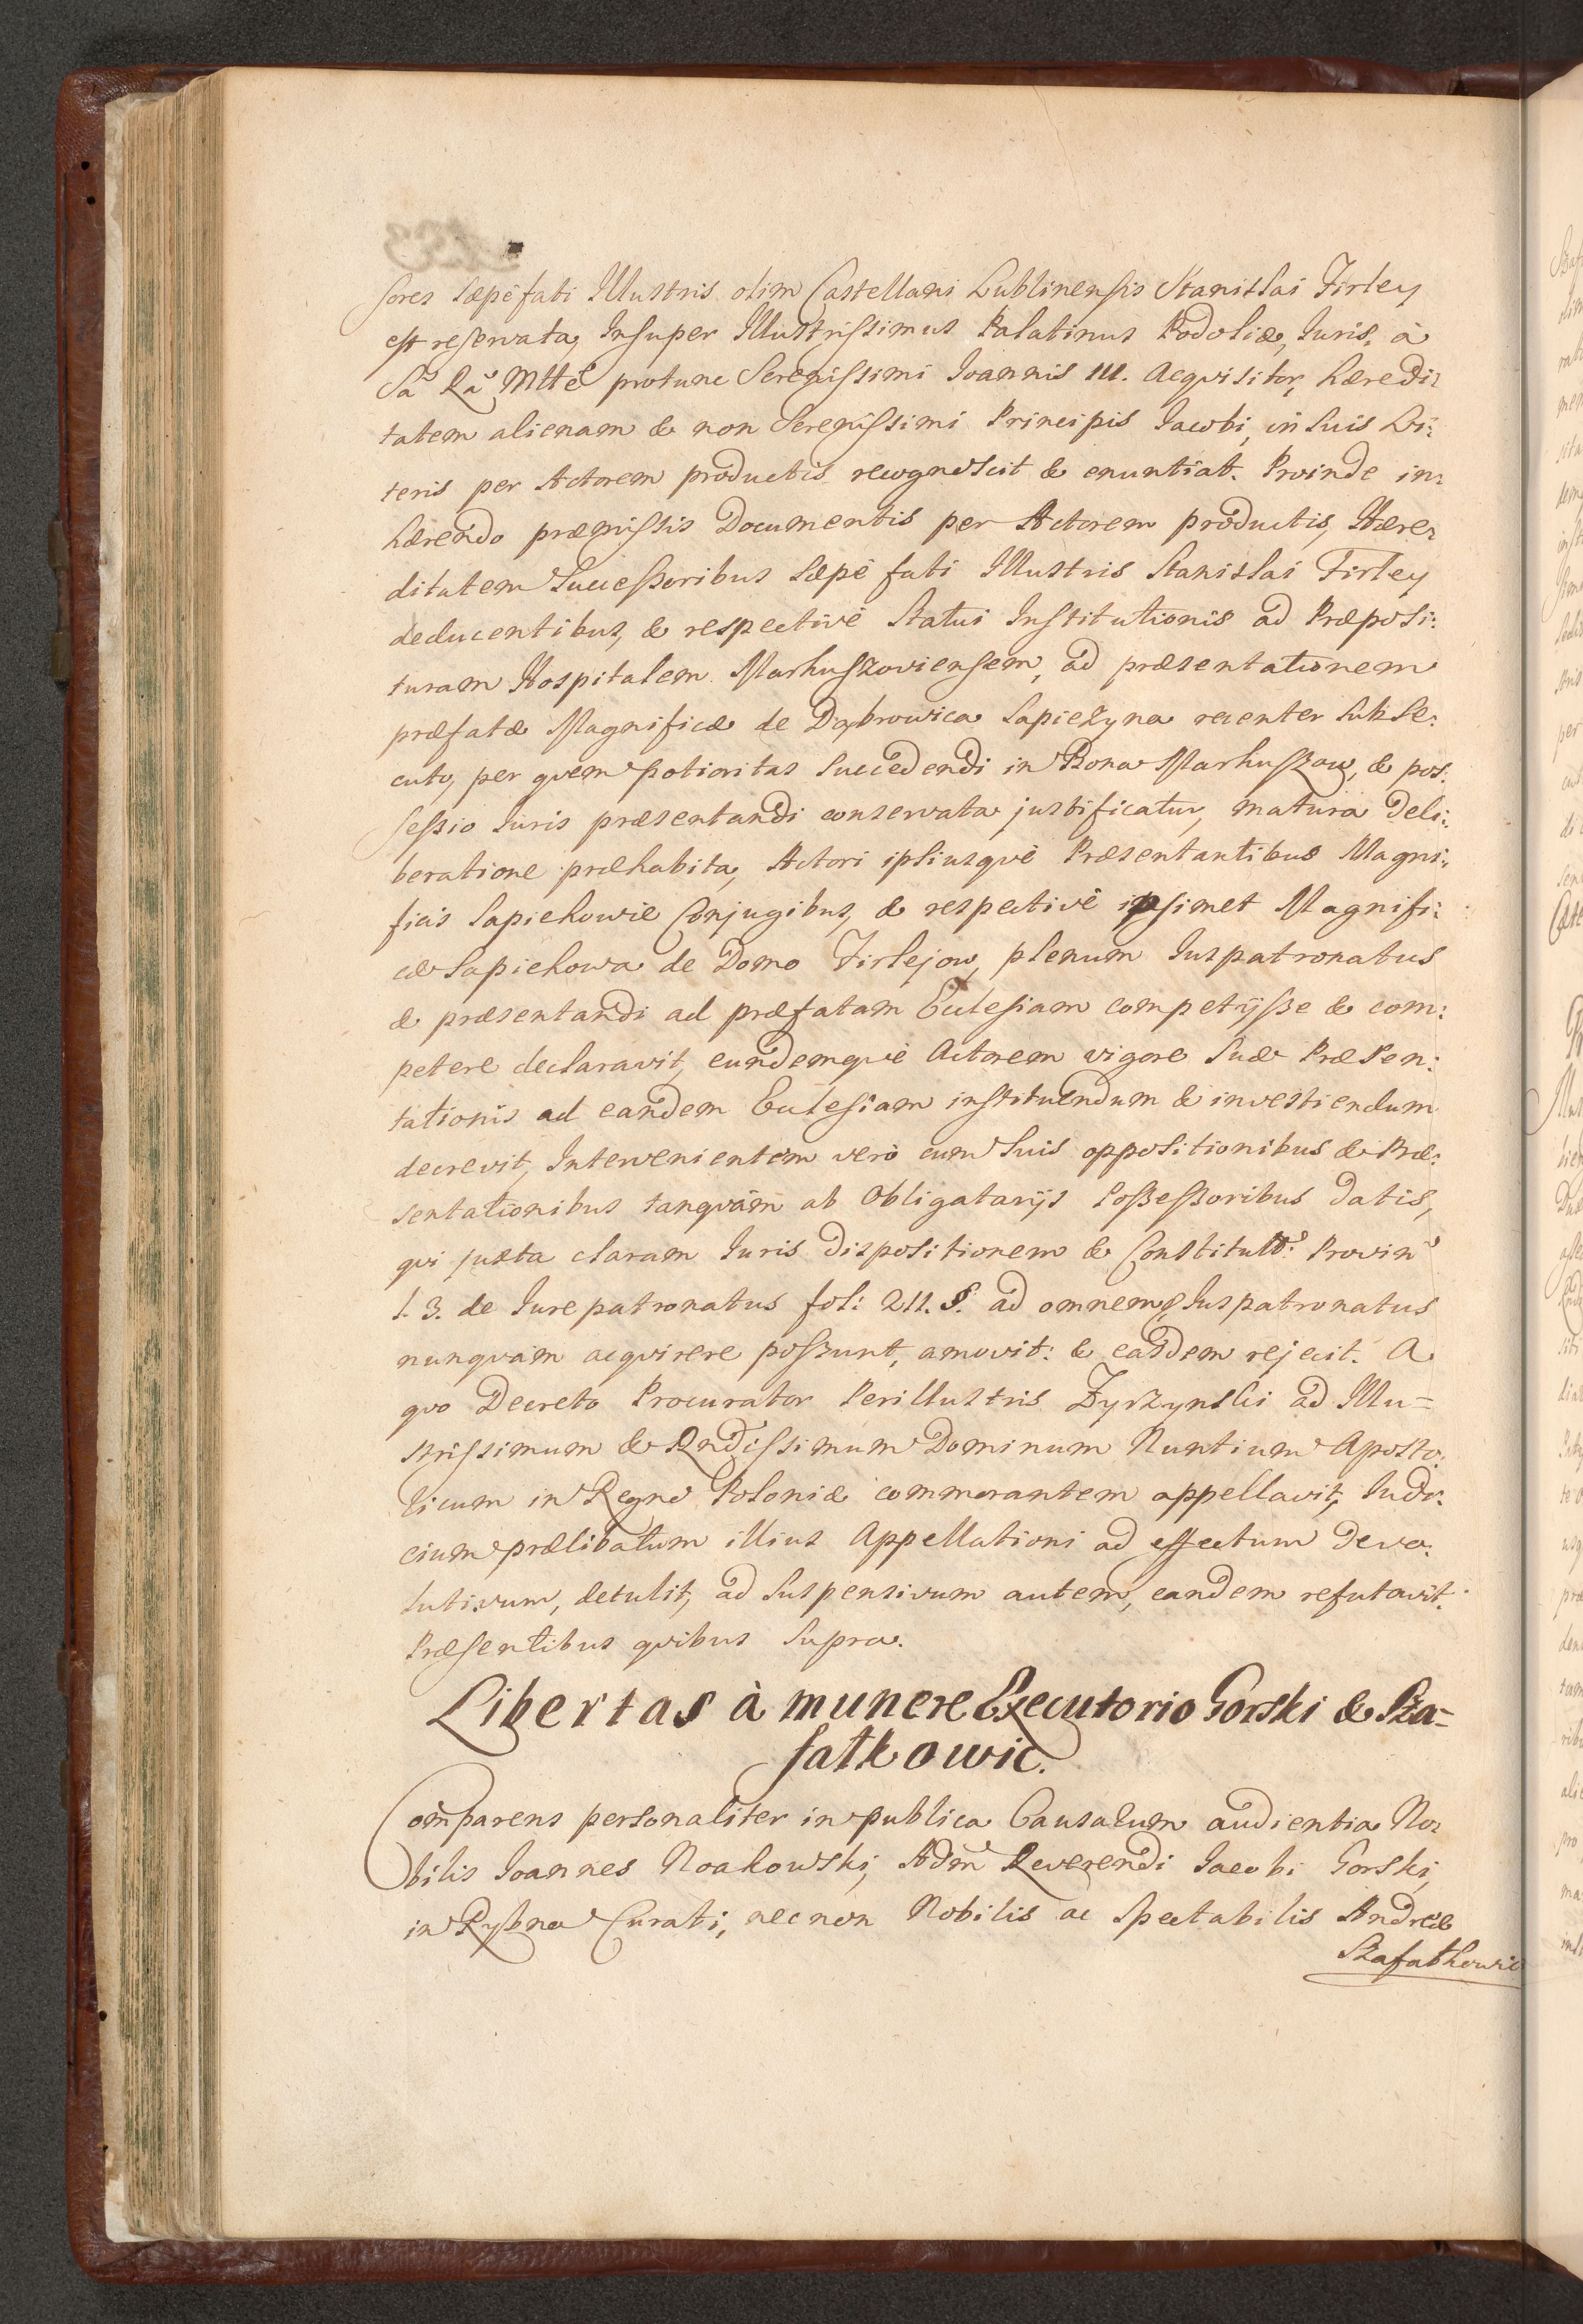 sores sæpefati Illustris olim Castellani Lublinensis Stanislai Firley
est reservata, Insuper Illustrissimus Palatinus Podoliæ, Iuris, à
Sa Ra Mtte protunc Serenissimi Ioannis III. Acqvisitor, hæredi:
tatem alienam & non Serenissimi Principis Iacobi, in suis Li:
teris per Actorem productis recognoscit & enuntiat. Proinde in:
hærendo præmissis Documentis per Actorem productis, Hære:
ditatem Successoribus sæpè fati Illustris Stanislai Firley
deducentibus, & respectivè Statui Institutionis ad Præposi:
turam Hospitalem Markuszoviensem, ad præsentationem
præfatæ Magnificæ de Dąbrowica Sapiezyna recenter subse:
cuto, per qvem potioritas succedendi in Bona Markuszow, & pos:
sessio Iuris præsentandi conservata justificatur, matura deli:
beratione præhabita, Actori ipsiusqvè Præsentantibus Magni:
ficis Sapiehowie Conjugibus, & respectivè ipsimet Magnifi:
cæ Sapiehowa de Domo Firlejow, plenum Iuspatronatus
& præsentandi ad præfatam Ecclesiam competijsse & com:
petere declaravit, eundemqvè Actorem vigore suæ Præsen:
tationis ad eandem Ecclesiam instituendum & investiendum
decrevit, Intervenientem verò cum suis oppositionibus & Præ:
sentationibus tanqvàm ab Obligatarijs Possessoribus datis,
qvi juxta claram Iuris dispositionem & Constitutt: Provin
l. 3. de Iure patronatus fol: 211. §. ad omnem, Iuspatronatus
nunqvàm acqvirere possunt, amovit: & easdem rejecit. A
qvo Decreto Procurator Perillustris Zyrzynski ad Illu=
strissimum & Rndissimum Dominum Nuntium Aposto:
licum in Regno Poloniæ commorantem appellavit, Iudi:
cium prælibatum illius Appellationi ad effectum devo:
lutivum, detulit, ad suspensivum autem, eandem refutavit.
Præsentibus qvibus supra.
Libertas à munere Executorio Gorski & Sza=
fatkowic.
Comparens personaliter in publica Causarum audientia No:
bilis Ioannes Noakowski, Adm Reverendi Iacobi Gorski,
in Rybno Curati, nec non Nobilis ac Spectabilis Andreæ
Szafatkowic